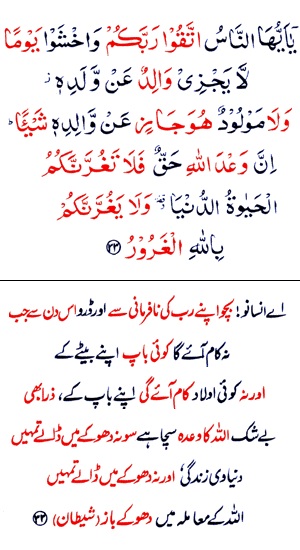 يٰۤاَيُّهَا النَّاسُ اتَّقُوْا رَبَّكُمْ وَاخْشَوْا يَوْمًا
لَّا يَجْزِىْ وَالِدٌ عَنْ وَّلَدِهٖ ز
وَلَا مَوْلُوْدٌ هُوَ جَازٍ عَنْ وَّالِدِهٖ شَيْئًا ؕ
اِنَّ وَعْدَ اللّٰهِ حَقٌّ فَلَا تَغُرَّنَّكُمُ
الْحَيٰوةُ الدُّنْيَا وَلَا يَغُرَّنَّكُمْ
بِاللّٰهِ الْغَرُوْرُ ﴿۳۳﴾
اے انسانو! بچو اپنے رب کی نافرمانی سے اور ڈرو اس دن سے جب
نہ کام آئے گا کوئی باپ اپنے بیٹے کے
اور نہ کوئی اولاد کام آئے گی اپنے باپ کے، ذرا بھی
بے شک اللہ کا وعدہ سچا ہے سو نہ دھوکے میں ڈالے تمہیں
دنیاوی زندگی، اور نہ دھوکے میں ڈالے تمہیں
اللہ کے معاملہ میں دھوکے باز (شیطان) ﴿۳۳﴾